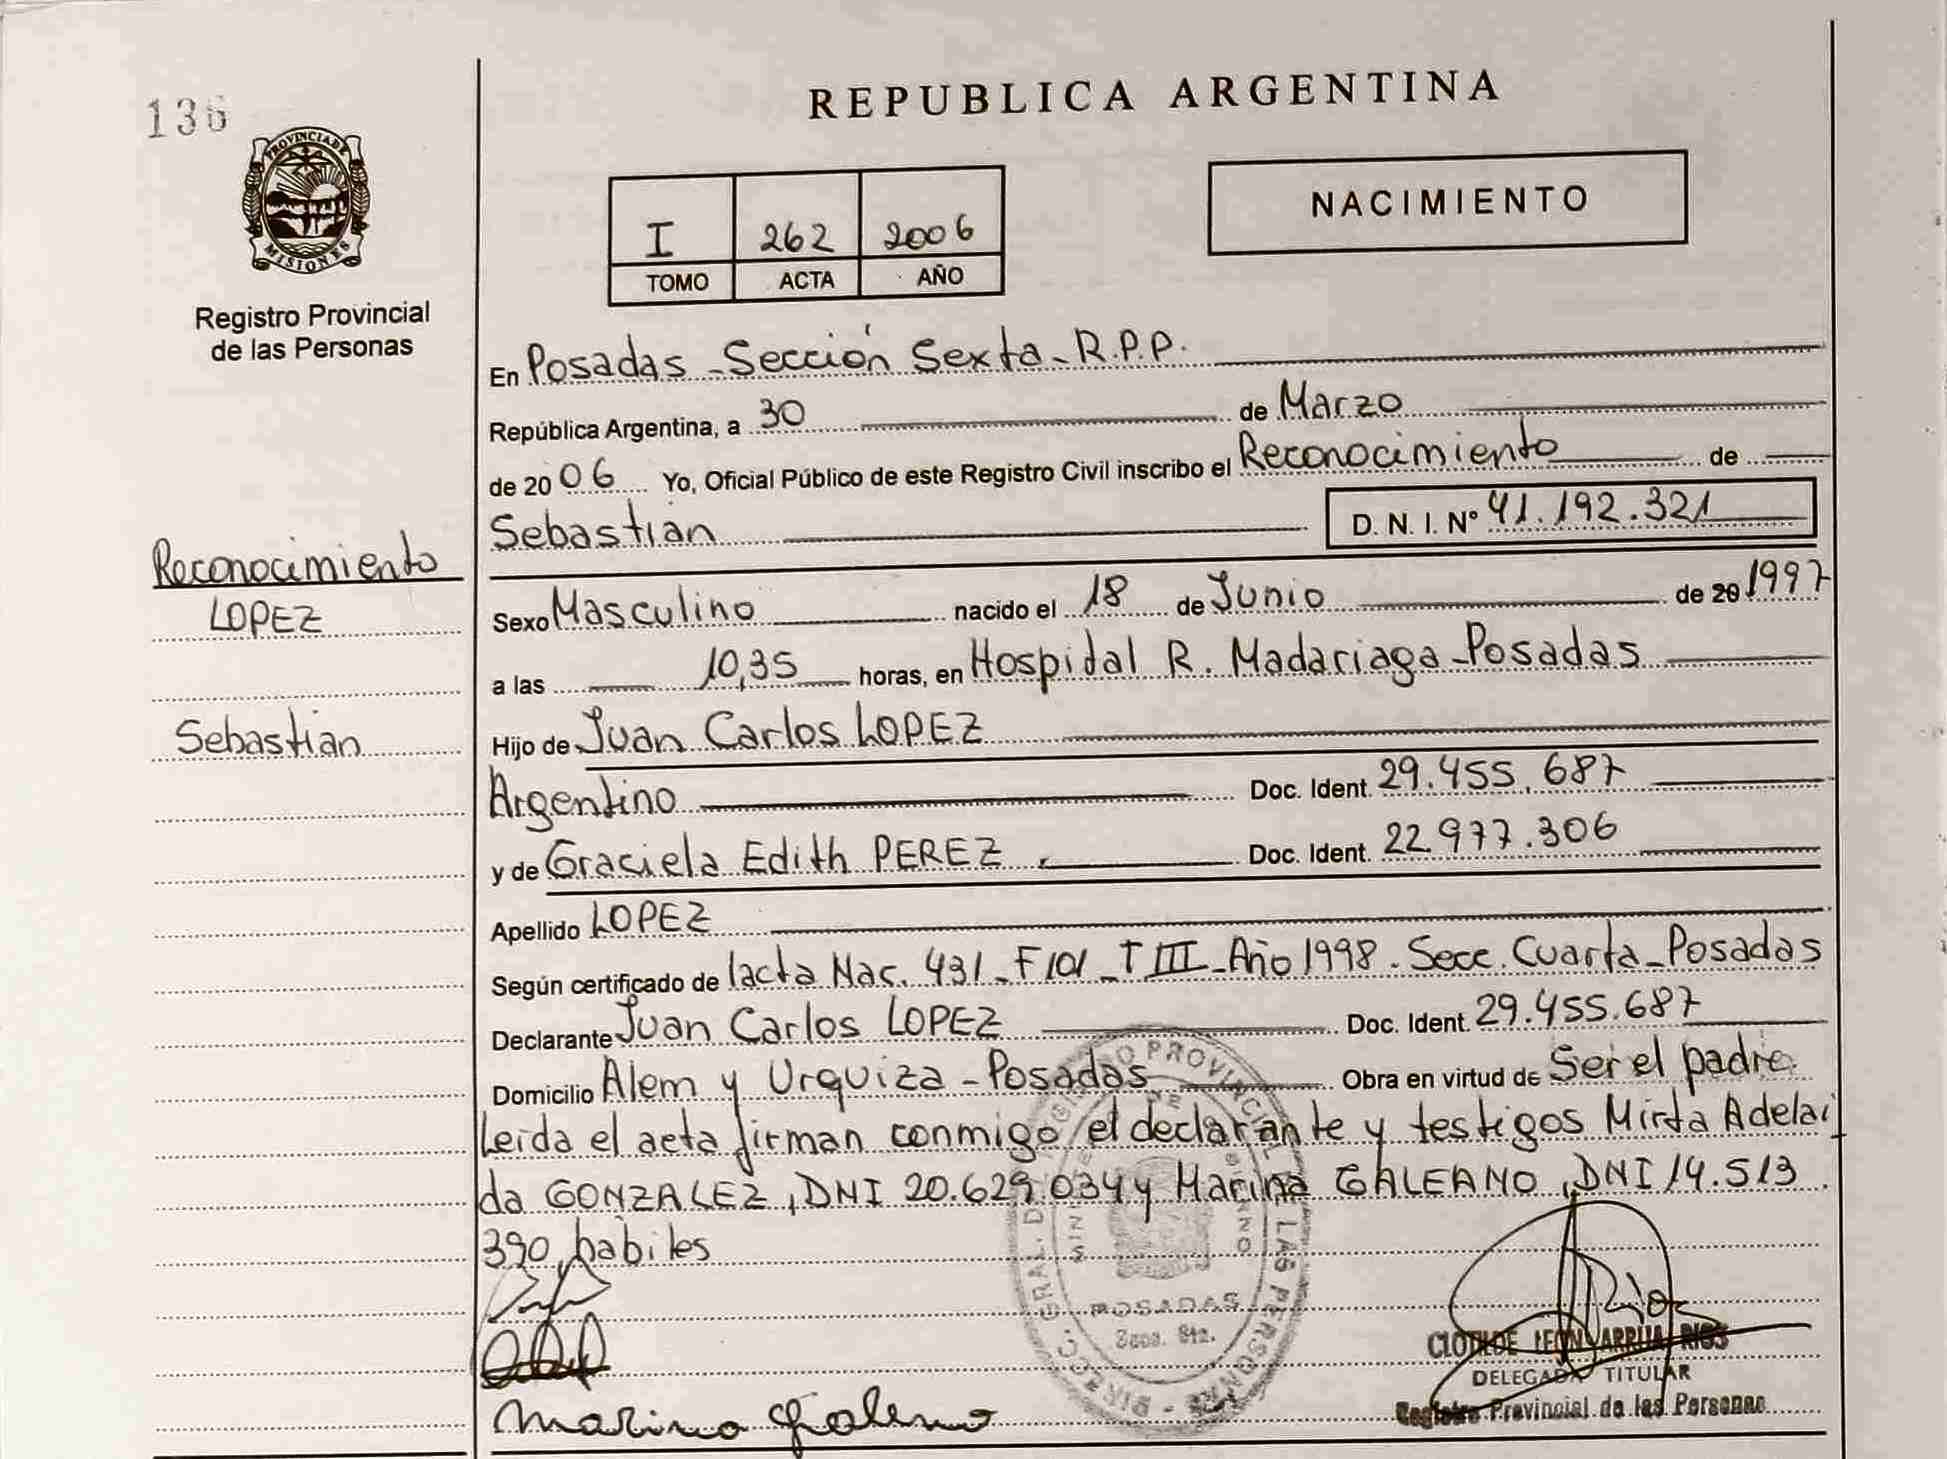 136
PROVINCIA DE
MISIONES
Registro Provincial
de las Personas
Reconocimiento
LOPEZ
Sebastian
REPUBLICA ARGENTINA
I 262 2006
TOMO ACTA AÑO
NACIMIENTO
En Posadas - Sección Sexta - R.P.P.
República Argentina, a 30 de Marzo
de 2006 Yo, Oficial Público de este Registro Civil inscribo el Reconocimiento de
Sebastian D. N. I. Nº 41.192.321
Sexo Masculino nacido el 18 de Junio de 20 1997
a las 10,35 horas, en Hospital R. Madariaga - Posadas
Hijo de Juan Carlos LOPEZ
Argentino Doc. Ident. 29.455.687
y de Graciela Edith PEREZ Doc. Ident. 22.977.306
Apellido LOPEZ
Según certificado de lacta Nac. 431 - F 101 - T III - Año 1998 - Secc. Cuarta - Posadas
Declarante Juan Carlos LOPEZ Doc. Ident. 29.455.687
Domicilio Alem y Urquiza - Posadas Obra en virtud de Ser el padre
Leída el acta firman conmigo el declarante y testigos Mirta Adelai
da GONZALEZ, DNI 20.629.034 y Marina GALEANO, DNI 14.513.
390 habiles
POSADAS
Secc. 6ta.
Rios
CLOTILDE RIOS
DELEGADA TITULAR
Registro Provincial de las Personas
Marina Galeano